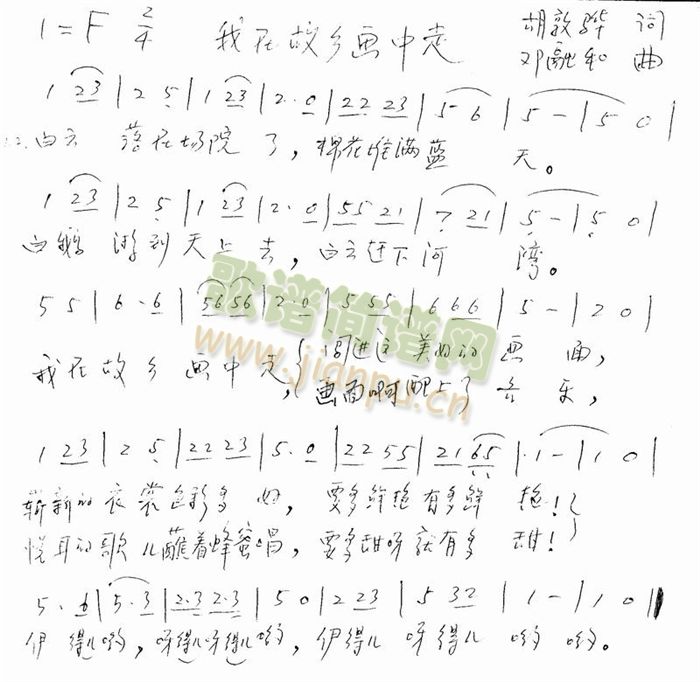 1=F 2/4 我在故乡画中走 胡敦骅 词
邓融和 曲
1 23 | 2 5 | 1 23 | 2· 0 | 22 23 | 5 6 | 5 - | 5 0 |
白云 落在场院 了，棉花堆满蓝 天。
1 23 | 2 5 | 1 23 | 2· 0 | 55 21 | 7 21 | 5 - | 5 0 |
白鹅 游到天上去，白云赶下河 湾。
5 5 | 6 · 6 | 56 56 | 2· 0 | 5 55 | 6 66 | 5 - | 2 0 |
我在故乡 画中走，(走进这美丽的 画 面，
画面啊配上了 音 乐，
1 23 | 2 5 | 22 23 | 5· 0 | 22 55 | 21 65 | 1 - | 1 0 |
崭新的衣裳色彩多 好，要多鲜艳有多鲜 艳！
悦耳的歌儿蘸着蜂蜜唱，要多甜呀就有多 甜！
5 · 6 | 5·3 | 2·3 2·3 | 5 0 | 2 23 | 5 32 | 1 - | 1 0 |
伊得儿哟，呀得儿呀得儿哟，伊得儿 呀得儿 哟 哟。
歌谱简谱网
www.jianpu.cn